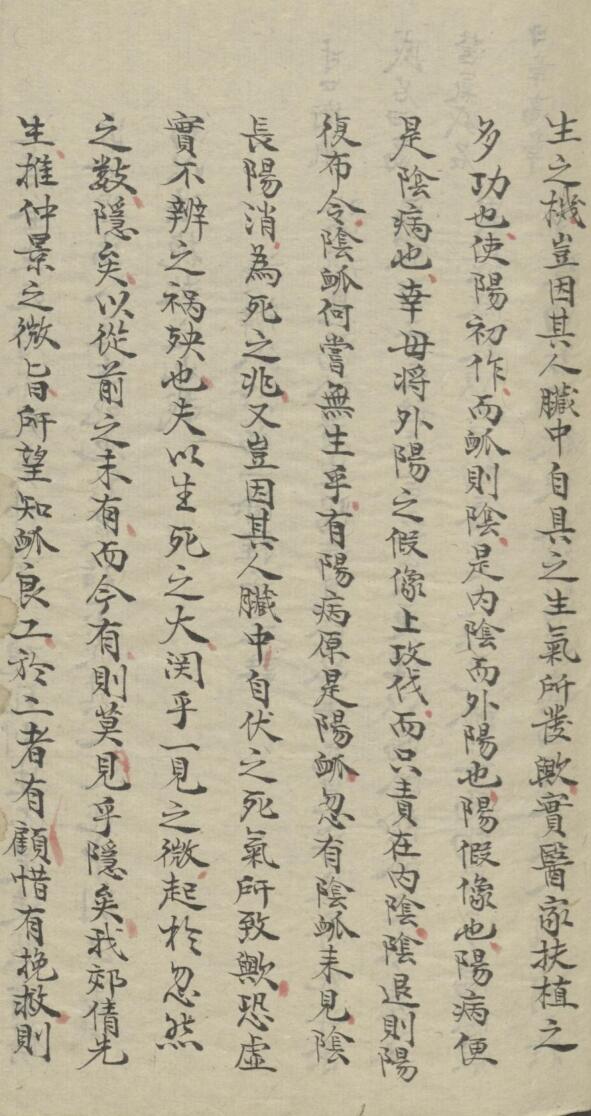 生之機豈因其人臟中自具之生氣所發歟實醫家扶植之
多功也使陽初作而脈則陰是内陰而外陽也陽假像也陽病便
是陰病也幸毋将外陽之假像上攻伐而只責在内陰陰退則陽
復布令陰脈何嘗無生乎有陽病原是陽脈忽有陰脈来見陰
長陽消為死之兆又豈因其人臟中自伏之死氣所致歟恐虚
實不辨之禍殃也夫以生死之大関乎一見之微起於忽然
之數隱矣以從前之未有而今有則莫見乎隱矣我郊倩先
生推仲景之微旨所望知脈良工於二者有顧惜有挽救則